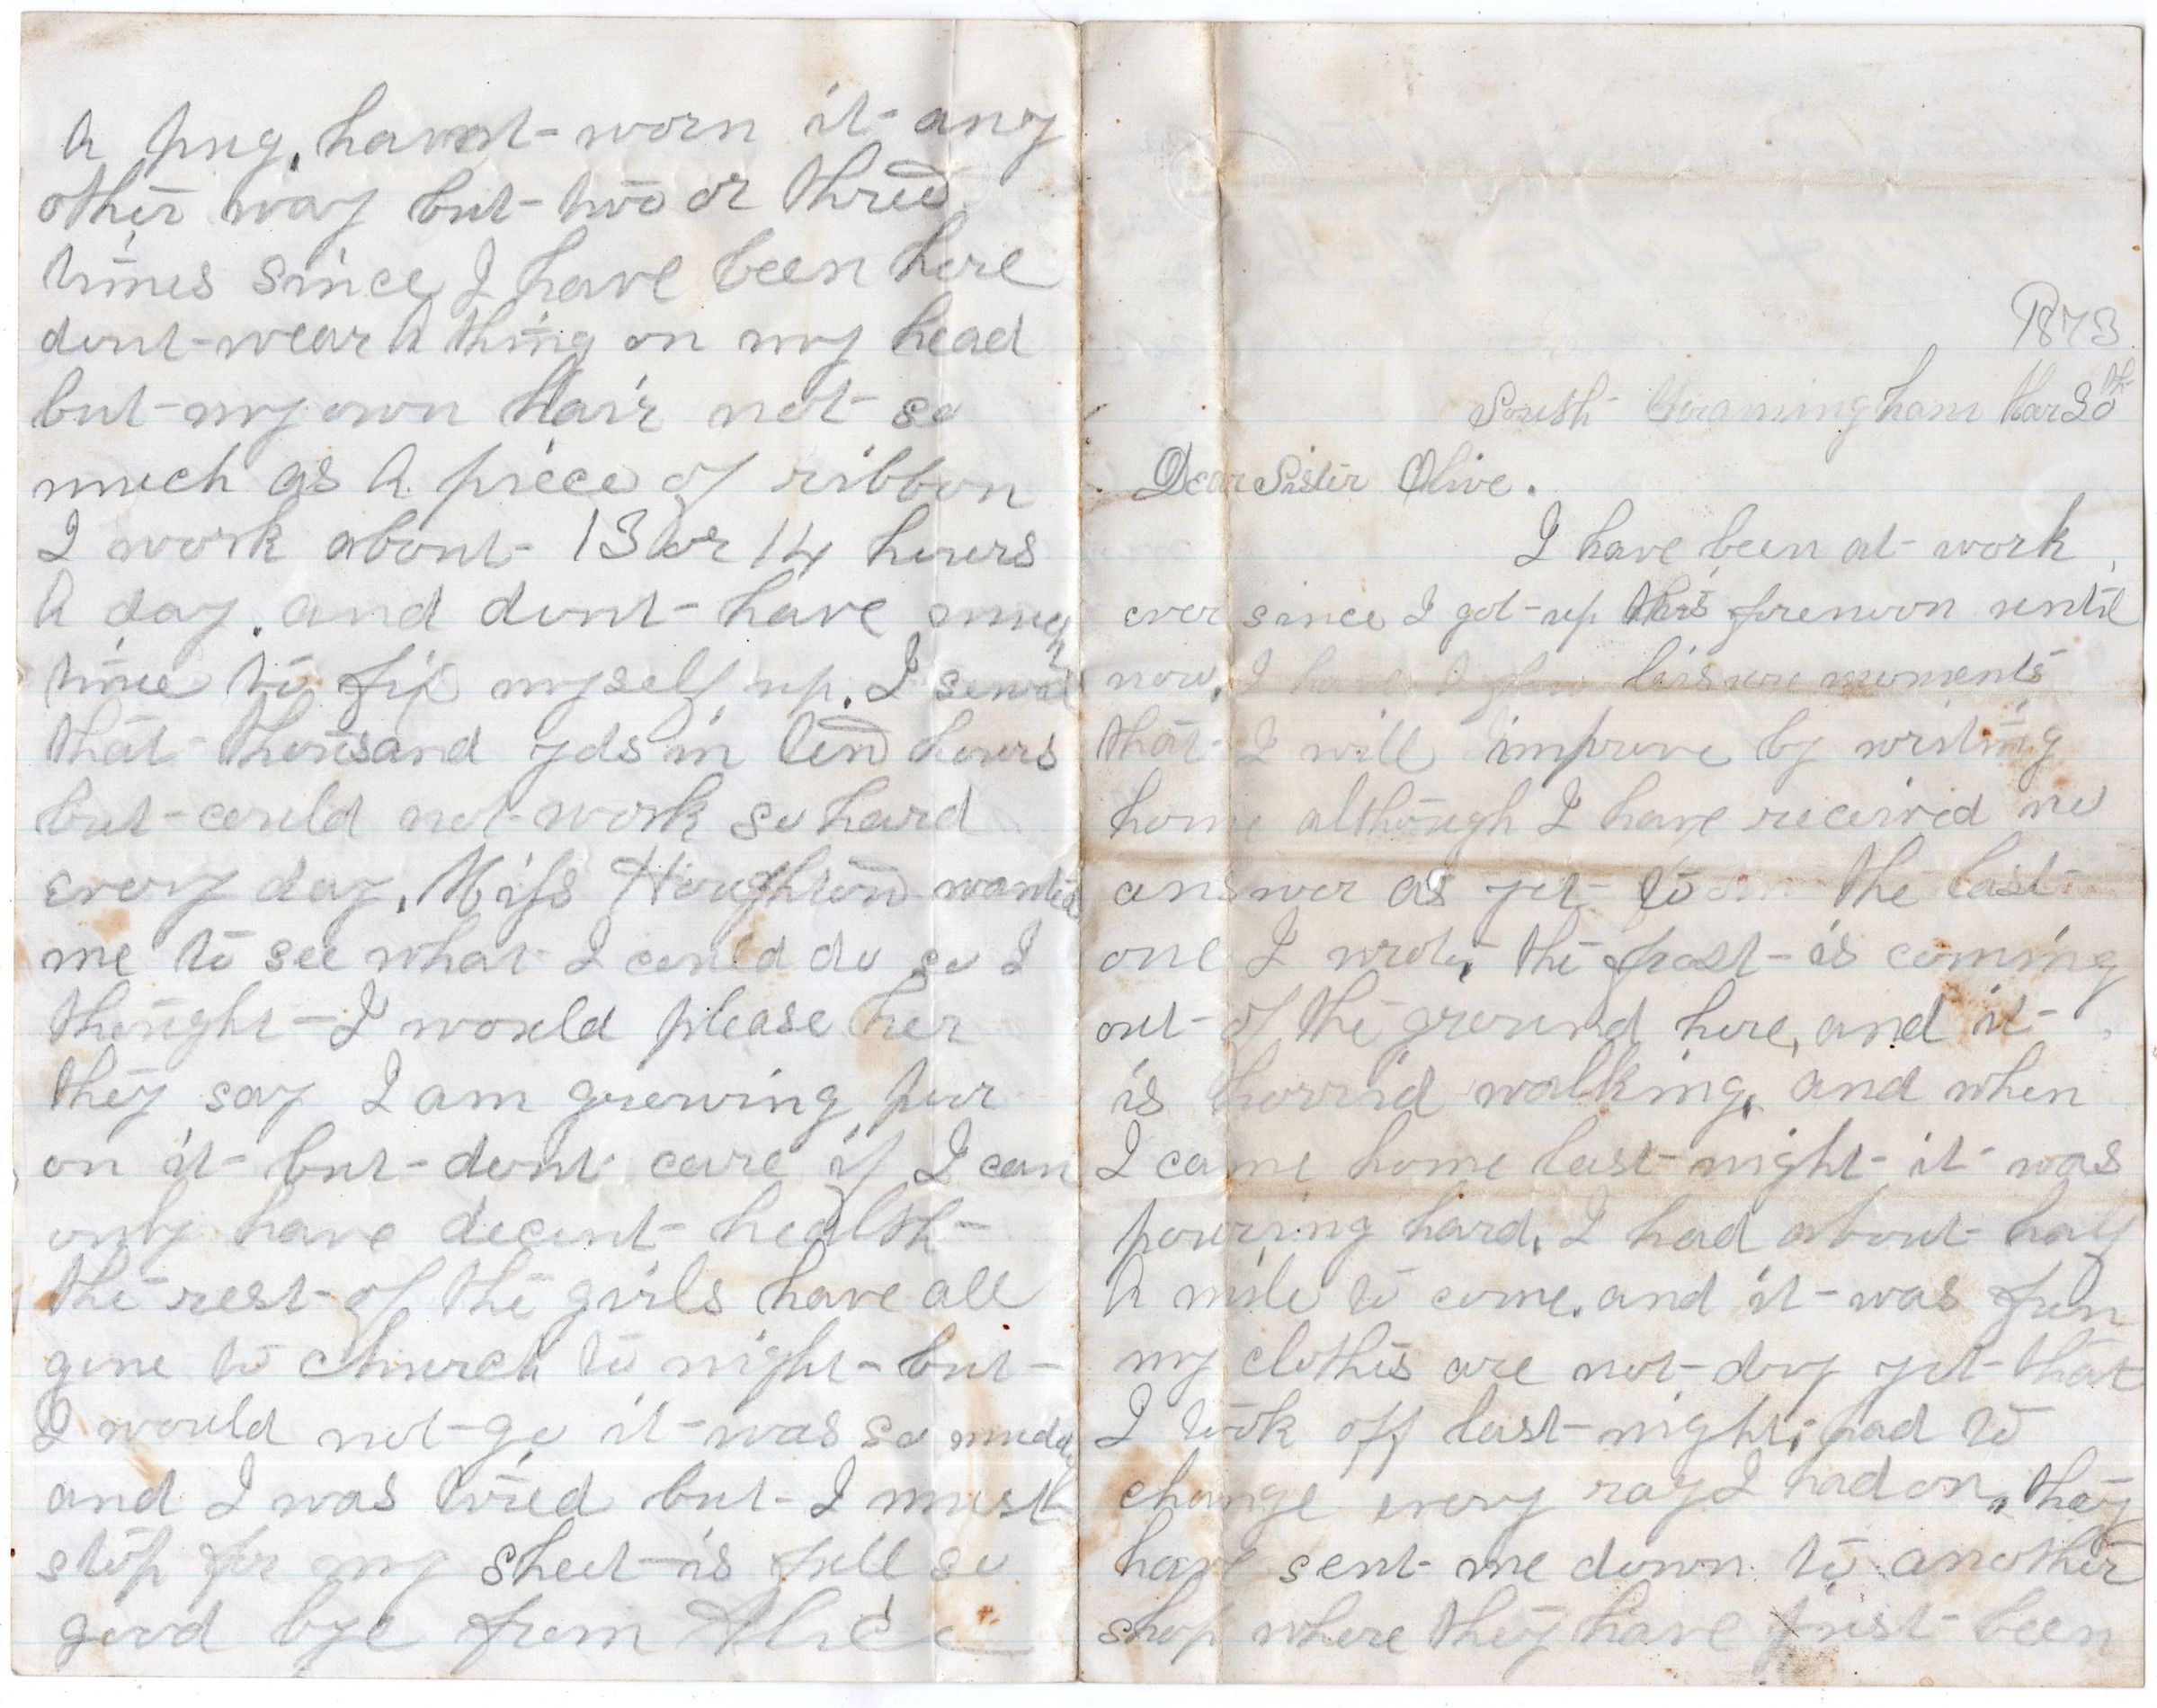 1873
South Framingham Mar 30th
Dear Sister Olive.
I have been at work
ever since I got up this forenoon until
now, I have a few leisure moments
that I will improve by writing
home although I have received no
answer as yet to the last
one I wrote, the frost is coming
out of the ground here, and it
is horrid walking, and when
I came home last night it was
pouring hard, I had about half
A mile to come. and it was fun
my clothes are not dry yet that
I took off last night, had to
change every rag I had on, they
have sent me down to another
shop where they have just been
A pug, havent worn it any
other way but two or three
times since I have been here
dont wear A thing on my head
but my own Hair not so
much as A piece of ribbon
I work about 13 or 14 hours
A day. and dont have much
time to fix myself up. I sewed
that thousand yds in ten hours
but could not work so hard
every day, Miss Houghton wanted
me to see what I could do so I
thought I would please her
they say I am growing poor
on it but dont care if I can
only have decent health
the rest of the girls have all
gone to church to night but
I would not go it was so muddy
and I was tired but I must
stop for my sheet is full so
good bye from Alice